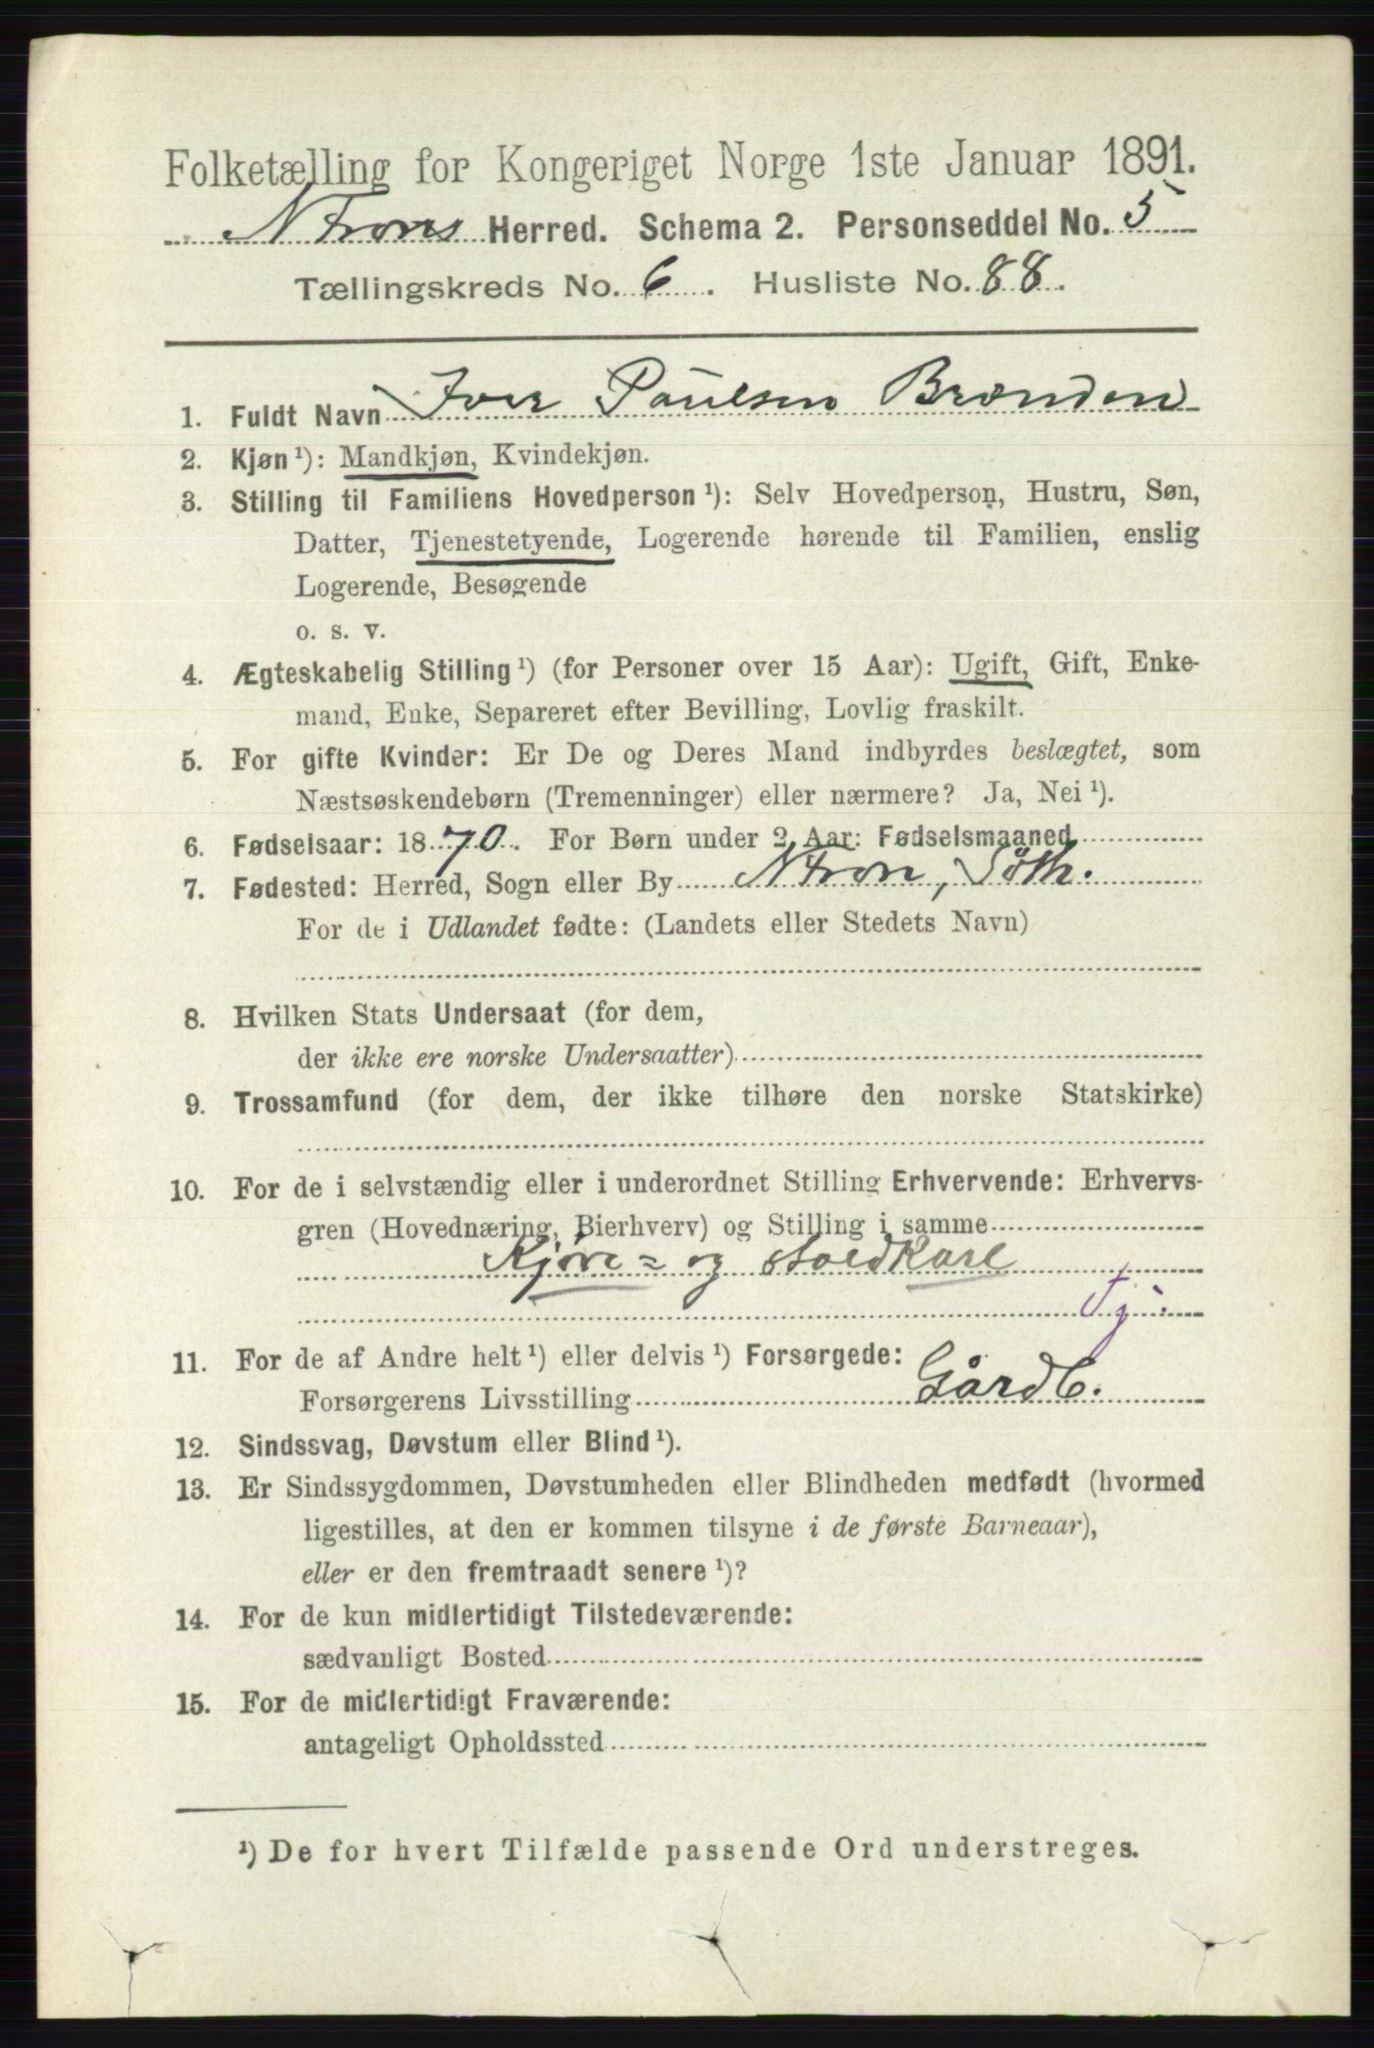 Folketælling for Kongeriget Norge 1ste Januar 1891.
N Frons Herred. Schema 2. Personseddel No. 5
Tællingskreds No. 6. Husliste No. 88.
1. Fuldt Navn Iver Paulsen Brænden
2. Kjøn ¹): Mandkjøn, Kvindekjøn.
3. Stilling til Familiens Hovedperson ¹): Selv Hovedperson, Hustru, Søn,
Datter, Tjenestetyende, Logerende hørende til Familien, enslig
Logerende, Besøgende
o. s. v.
4. Ægteskabelig Stilling ¹) (for Personer over 15 Aar): Ugift, Gift, Enke-
mand, Enke, Separeret efter Bevilling, Lovlig fraskilt.
5. For gifte Kvinder: Er De og Deres Mand indbyrdes beslægtet, som
Næstsøskendebørn (Tremenninger) eller nærmere? Ja, Nei ¹).
6. Fødselsaar: 1870. For Børn under 2 Aar: Fødselsmaaned
7. Fødested: Herred, Sogn eller By N Fron, Söth.
For de i Udlandet fødte: (Landets eller Stedets Navn)
8. Hvilken Stats Undersaat (for dem,
der ikke ere norske Undersaatter)
9. Trossamfund (for dem, der ikke tilhøre den norske Statskirke)
10. For de i selvstændig eller i underordnet Stilling Erhvervende: Erhvervs-
gren (Hovednæring, Bierhverv) og Stilling i samme
Kjöre- og Stoldkarl
Tj.
11. For de af Andre helt ¹) eller delvis ¹) Forsørgede:
Forsørgerens Livsstilling Gårdb.
12. Sindssvag, Døvstum eller Blind ¹).
13. Er Sindssygdommen, Døvstumheden eller Blindheden medfødt (hvormed
ligestilles, at den er kommen tilsyne i de første Barneaar),
eller er den fremtraadt senere ¹)?
14. For de kun midlertidigt Tilstedeværende:
sædvanligt Bosted
15. For de midlertidigt Fraværende:
antageligt Opholdssted
¹) De for hvert Tilfælde passende Ord understreges.